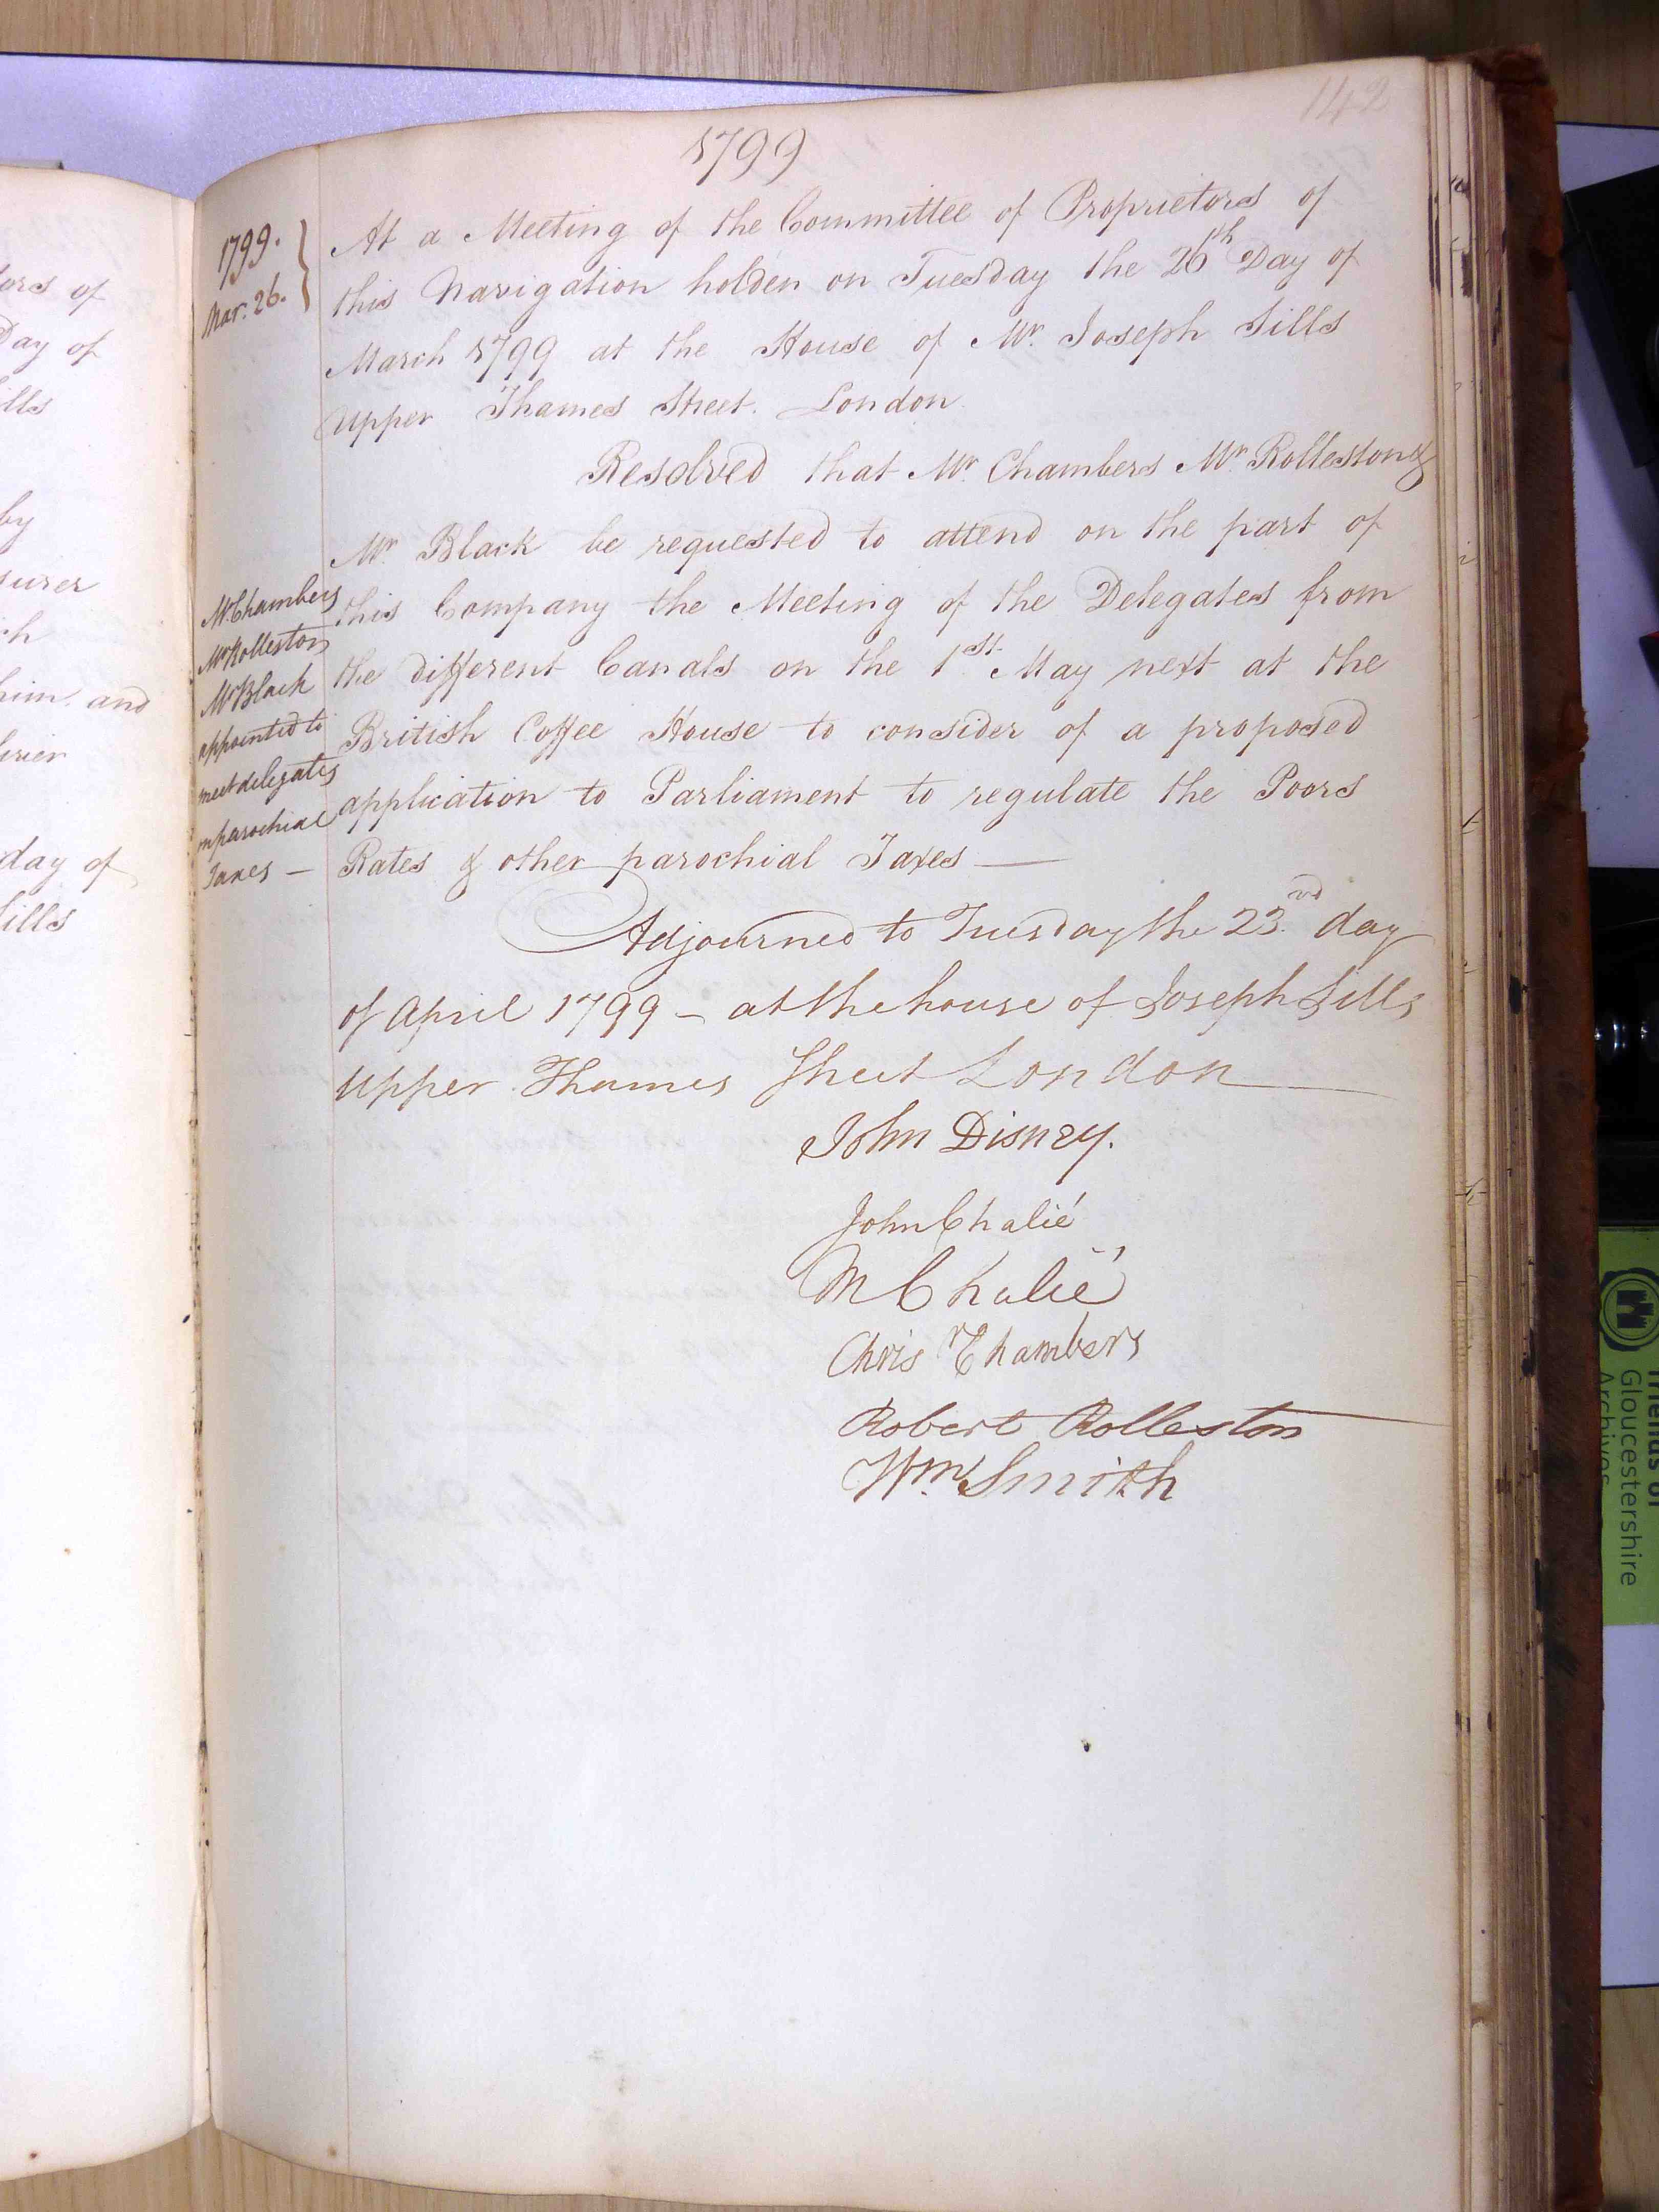 142
1799
1799.
Mar. 26.
At a Meeting of the Committee of Proprietors of
this Navigation holden on Tuesday the 26th Day of
March 1799 at the House of Mr. Joseph Sills
Upper Thames Street. London
Resolved that Mr. Chambers Mr. Rolleston &
Mr. Black be requested to attend on the part of
this Company the Meeting of the Delegates from
the different Canals on the 1st May next at the
British Coffee House to consider of a proposed
application to Parliament to regulate the Poors
Rates & other parochial Taxes —
Mr. Chambers
Mr Rolleston
Mr Black
appointed to
meet delegates
on parochial
Taxes —
Adjourned to Tuesday the 23rd day
of April 1799 – at the house of Joseph Sills
Upper Thames Street London
John Disney.
John Chalié
M Chalié
Chrisr Chambers
Robert Rolleston
Wm. Smith
ors of
Day of
ills
by
surer
ch
him. and
day of
Sills
Friends of
Gloucestershire
Archives